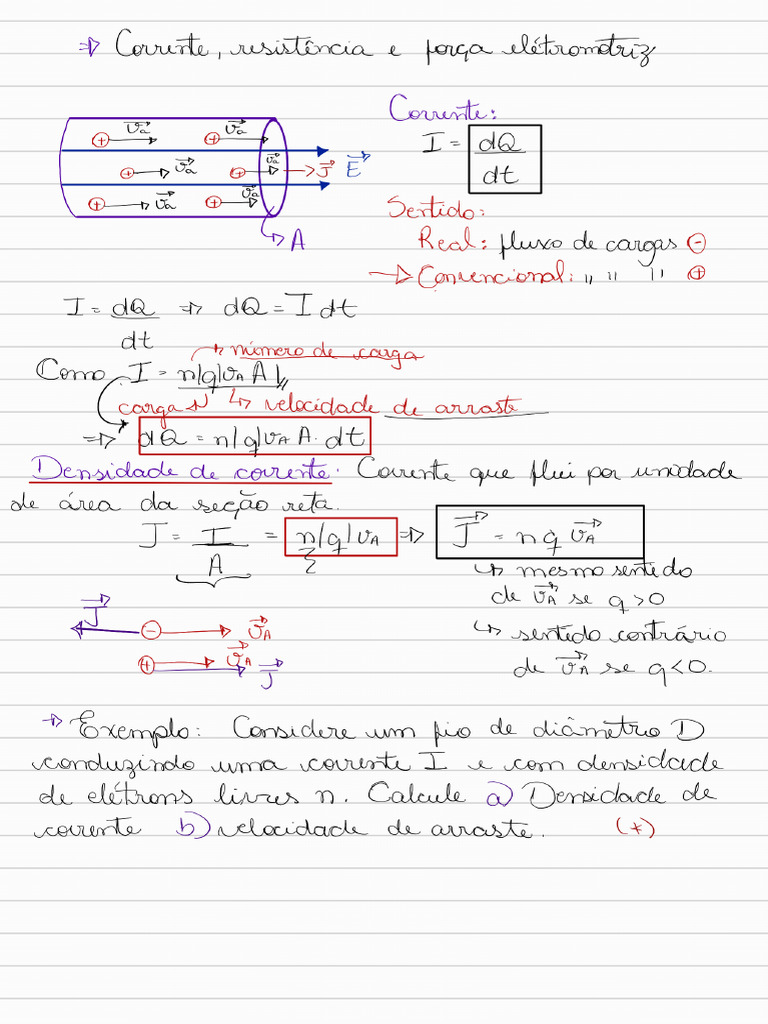 ⇒ Corrente, resistência e força elétromotriz
Corrente:
I = dQ/dt
v⃗a v⃗a
v⃗a v⃗a J⃗ E⃗
v⃗a v⃗a
A
Sentido:
Real: fluxo de cargas ⊖
→ Convencional: ,, ,, ,, ⊕
I = dQ/dt ⇒ dQ = I dt
↱ número de carga
Como I = n|q|vA A
carga ↲ ↳ velocidade de arraste
⇒ dQ = n|q|vA A. dt
Densidade de corrente: Corrente que flui por unidade
de área da seção reta.
J = I/A = n|q|vA ⇒ J⃗ = nq v⃗A
↳ mesmo sentido
de v⃗A se q>0
↳ sentido contrário
de v⃗A se q<0.
J⃗ ⊖ v⃗A
⊕ v⃗A J⃗
→ Exemplo: Considere um fio de diâmetro D
conduzindo uma corrente I e com densidade
de elétrons livres n. Calcule a) Densidade de
corrente b) velocidade de arraste. (*)